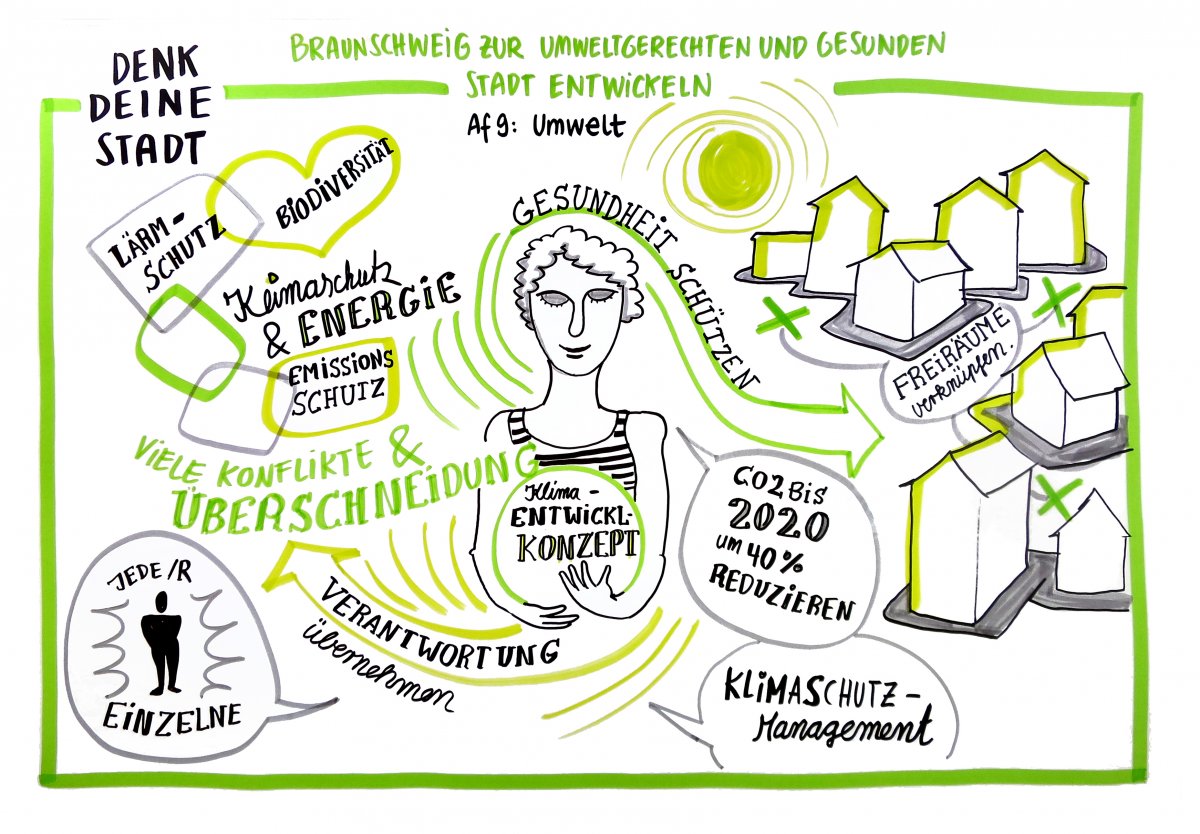 DENK
DEINE
STADT
BRAUNSCHWEIG ZUR UMWELTGERECHTEN UND GESUNDEN
STADT ENTWICKELN
Af9: Umwelt
LÄRM-
SCHUTZ
BIODIVERSITÄT
Klimaschutz
& ENERGIE
EMISSIONS
SCHUTZ
VIELE KONFLIKTE &
ÜBERSCHNEIDUNG
GESUNDHEIT SCHÜTZEN
FREIRÄUME
verknüpfen.
Klima-
ENTWICKL-
KONZEPT
CO2 Bis
2020
um 40%
REDUZIEREN
JEDE/R
EINZELNE
VERANTWORTUNG
übernehmen
KLIMASCHUTZ-
Management